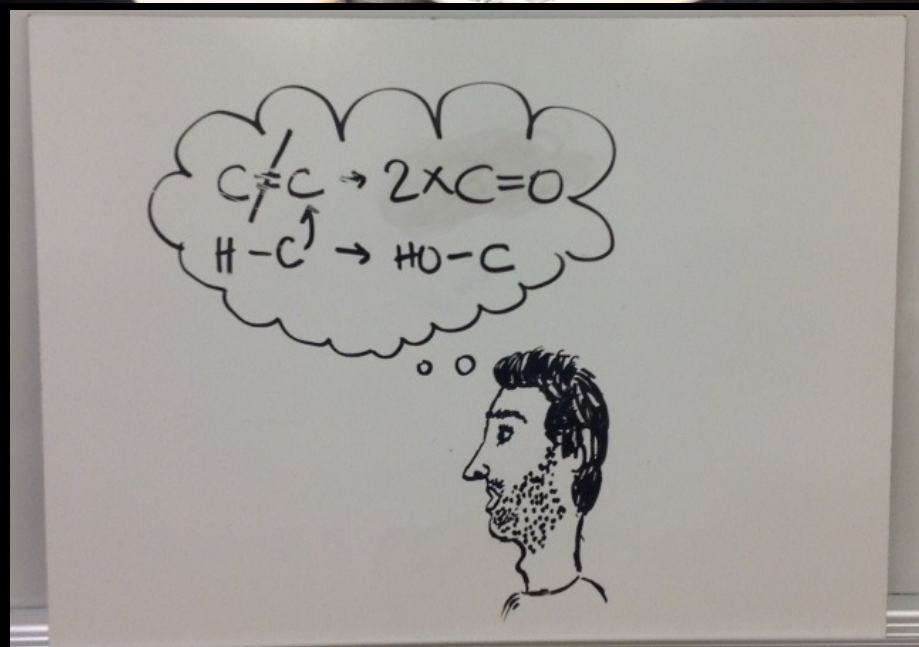 C=C → 2xC=O
H-C → HO-C